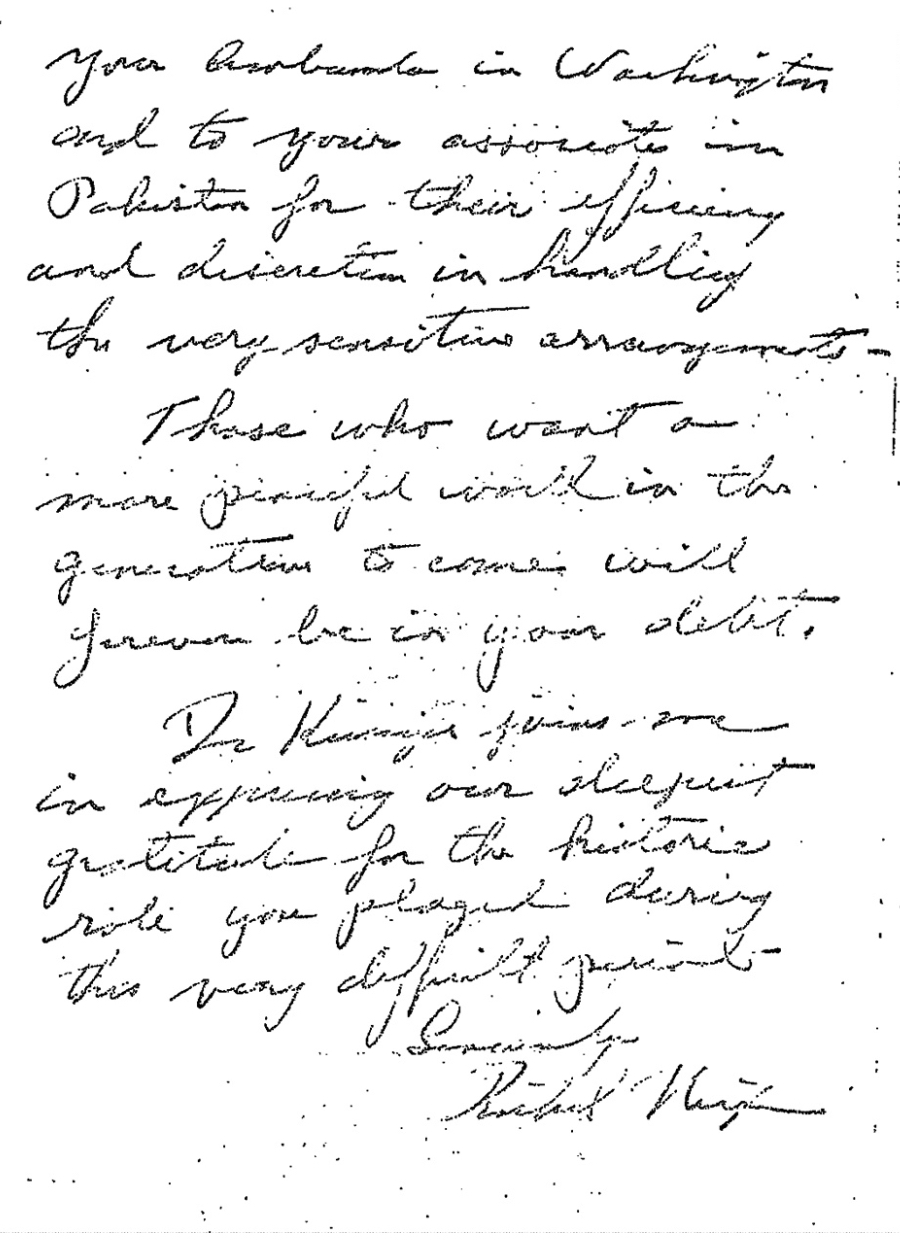 your Ambassador in Washington
and to your associates in
Pakistan for their efficiency
and discretion in handling
the very sensitive arrangements -
Those who want a
more peaceful world in the
generation to come will
forever be in your debt.
Dr Kissinger joins me
in expressing our deepest
gratitude for the historic
role you played during
this very difficult period -
Sincerely
Richard Nixon